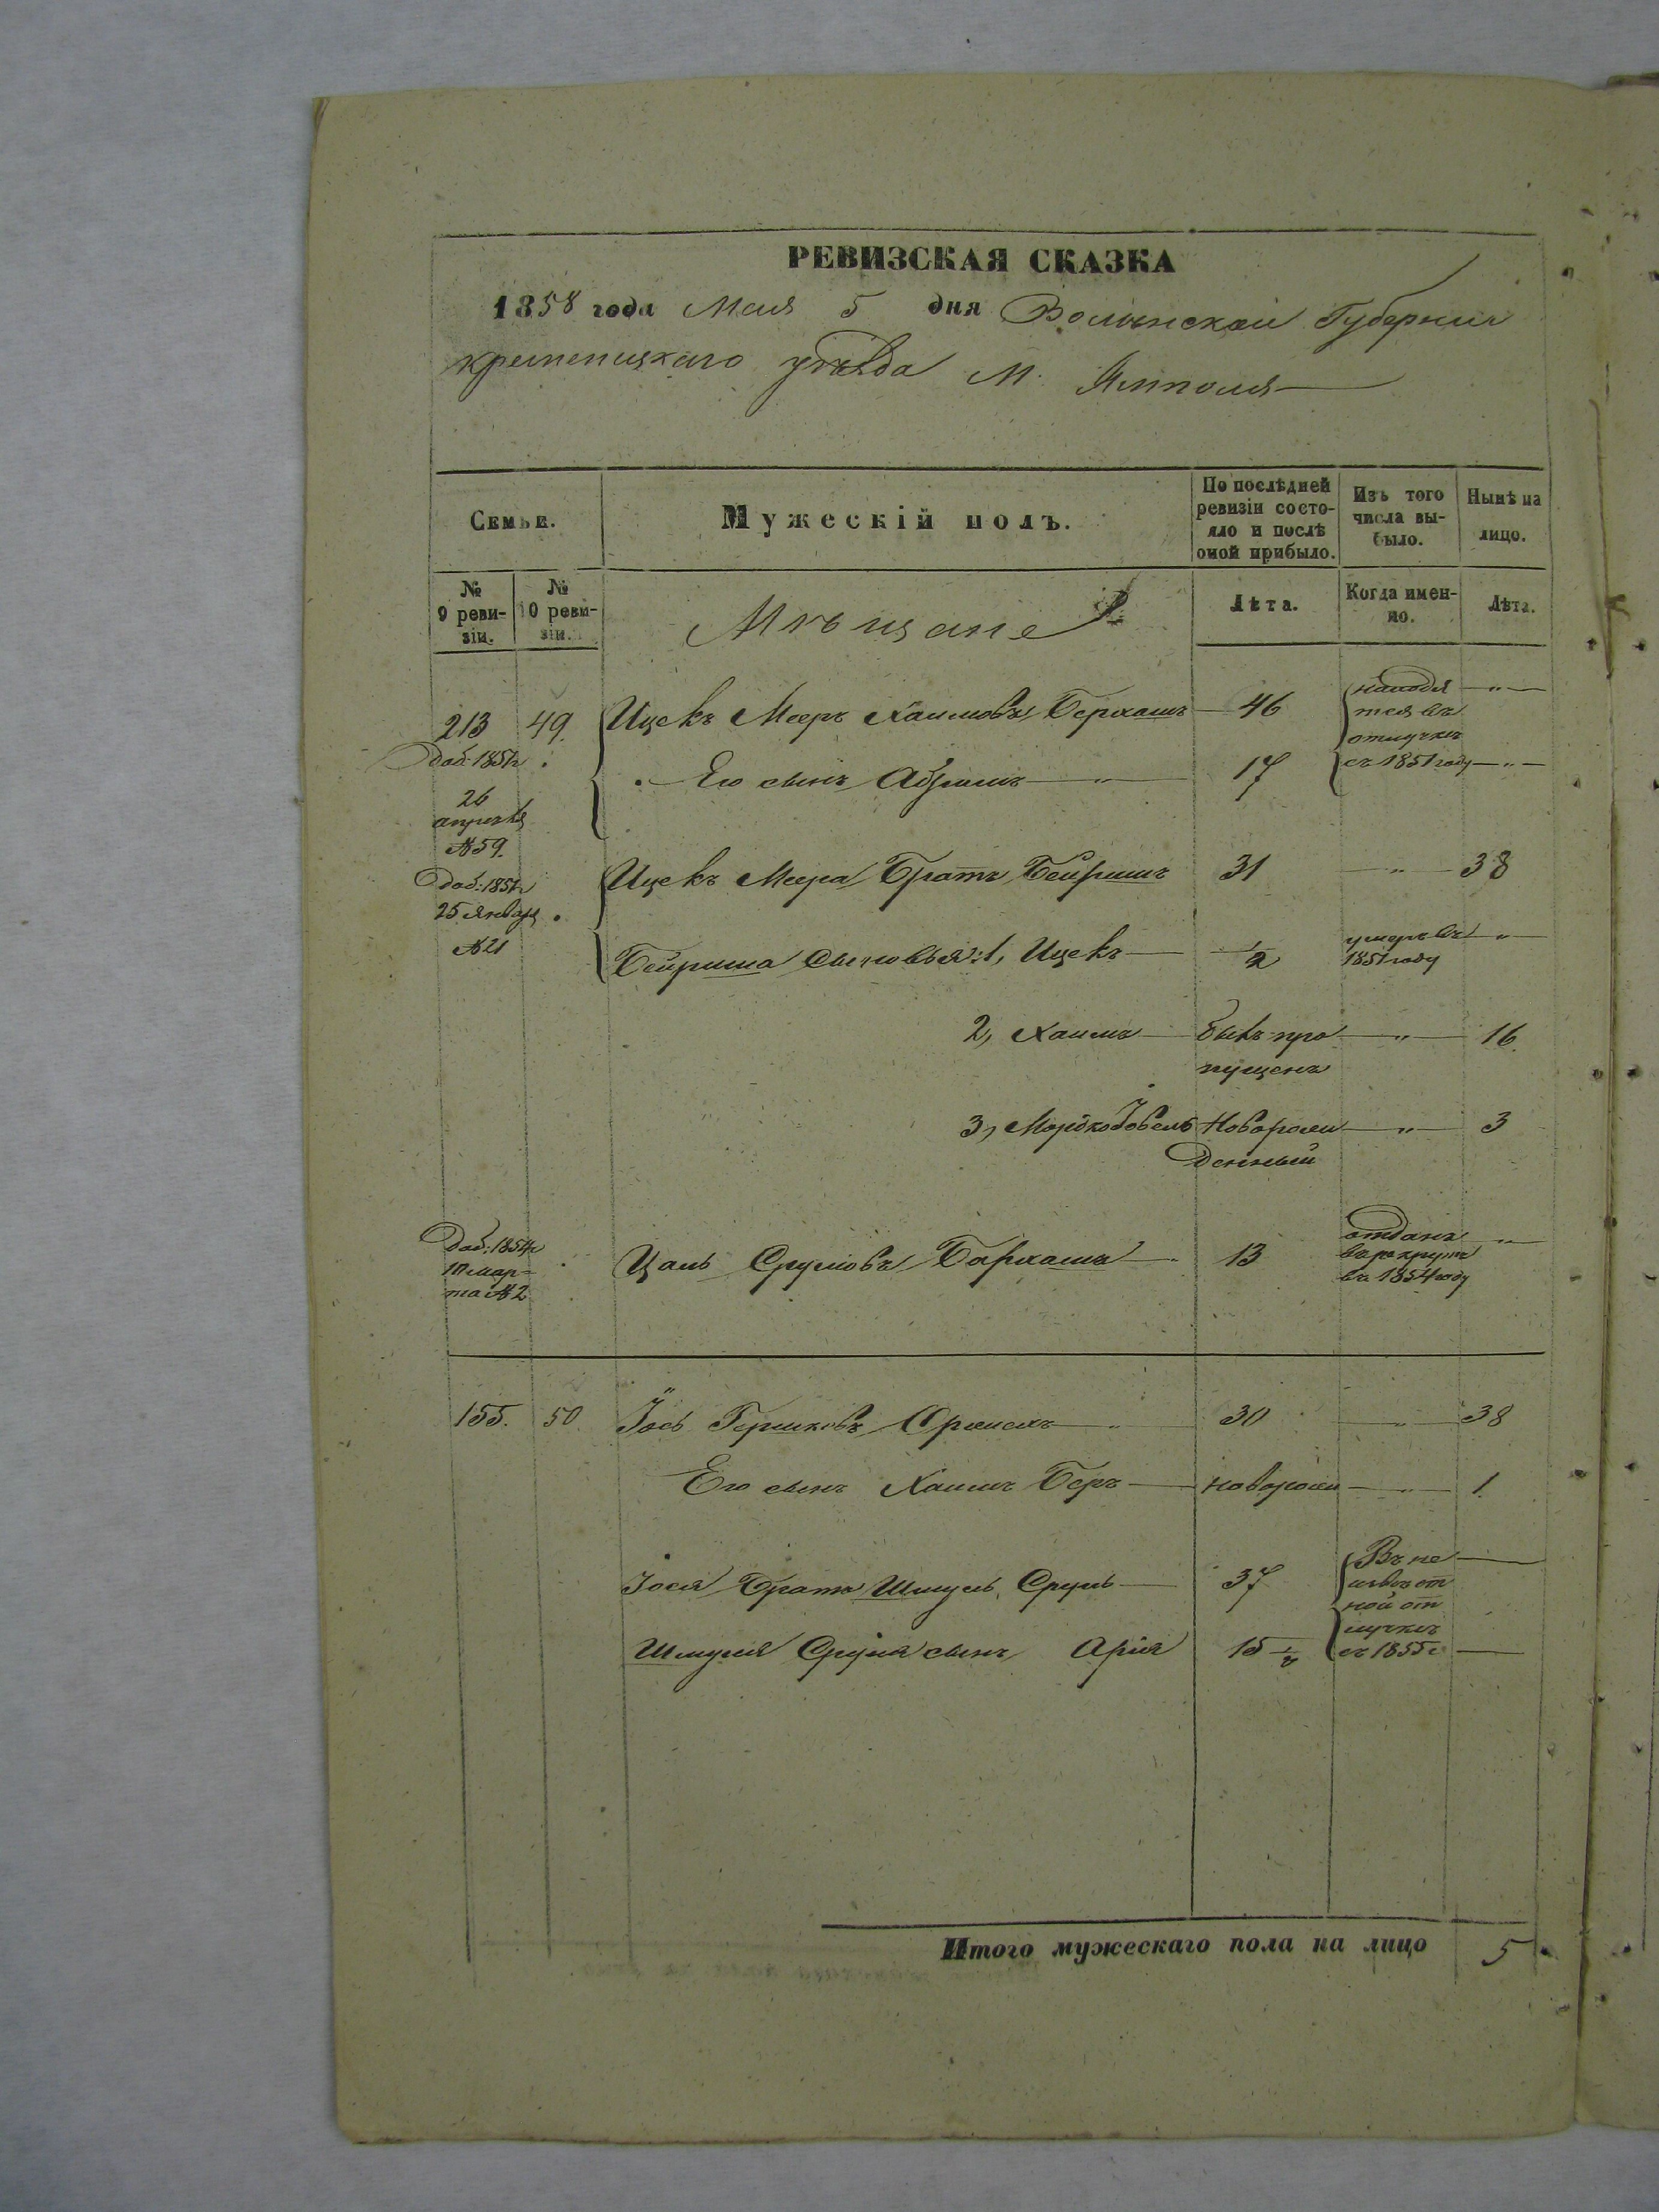 РЕВИЗСКАЯ СКАЗКА
1858 года Мая 5 дня Волынской Губернии
кременицкаго уѣзда М. Ямполя
Семьи.
Мужескій полъ.
По послѣдней ревизіи состояло и послѣ оной прибыло.
Изъ того числа выбыло.
Нынѣ на лицо.
№ 9 ревизіи.
№ 10 ревизіи.
Мѣщане
Лѣта.
Когда именно.
Лѣта.
213 49. Ицекъ Мееръ Хаимовъ 46 находя
тся въ
отлучкѣ
доб: 1851г Его сынъ Абрамъ 17 съ 1851 году
26
апрелѧ
№ 59.
Ицекъ Меера Братъ Бейришъ 31 " 38
доб: 1851г
25 Январѧ
№ 21
Бейриша Сыновья: 1, Ицекъ 1/2 умеръ въ "
1851 году
2, Хаимъ былъ про " 16
пущенъ
3, Мордко Новорож " 3
денный
доб: 1854г
10 мар-
та № 2
Цаль Срулювъ 13 отданъ "
въ рекруты
въ 1854 году
155. 50. Іось Гершковъ 30 " 38
Его сынъ Хаимъ Беръ новорож " 1
Іося Братъ Шмуль Сруль 37 Въ не
извѣст
ной от
лучкѣ
Шмуля Сруля сынъ Арія 15 1/2 съ 1855г
Итого мужескаго пола на лицо 5